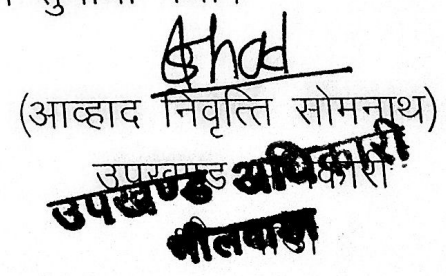 (आव्हाद निवृत्ति सोमनाथ)
उपखण्ड अधिकारी
उपखण्ड अधिकारी
भीलवाडा